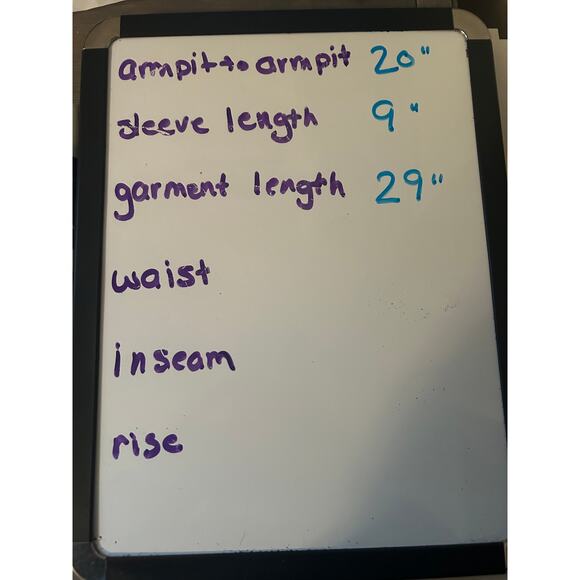 armpit to armpit 20"
sleeve length 9"
garment length 29"
waist
inseam
rise